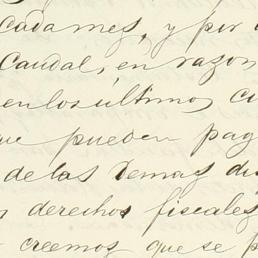 cada mes, y por
Caudal, en razon
en los últimos
que pueden pag
de las demas di
derechos fiscales
creemos que se p